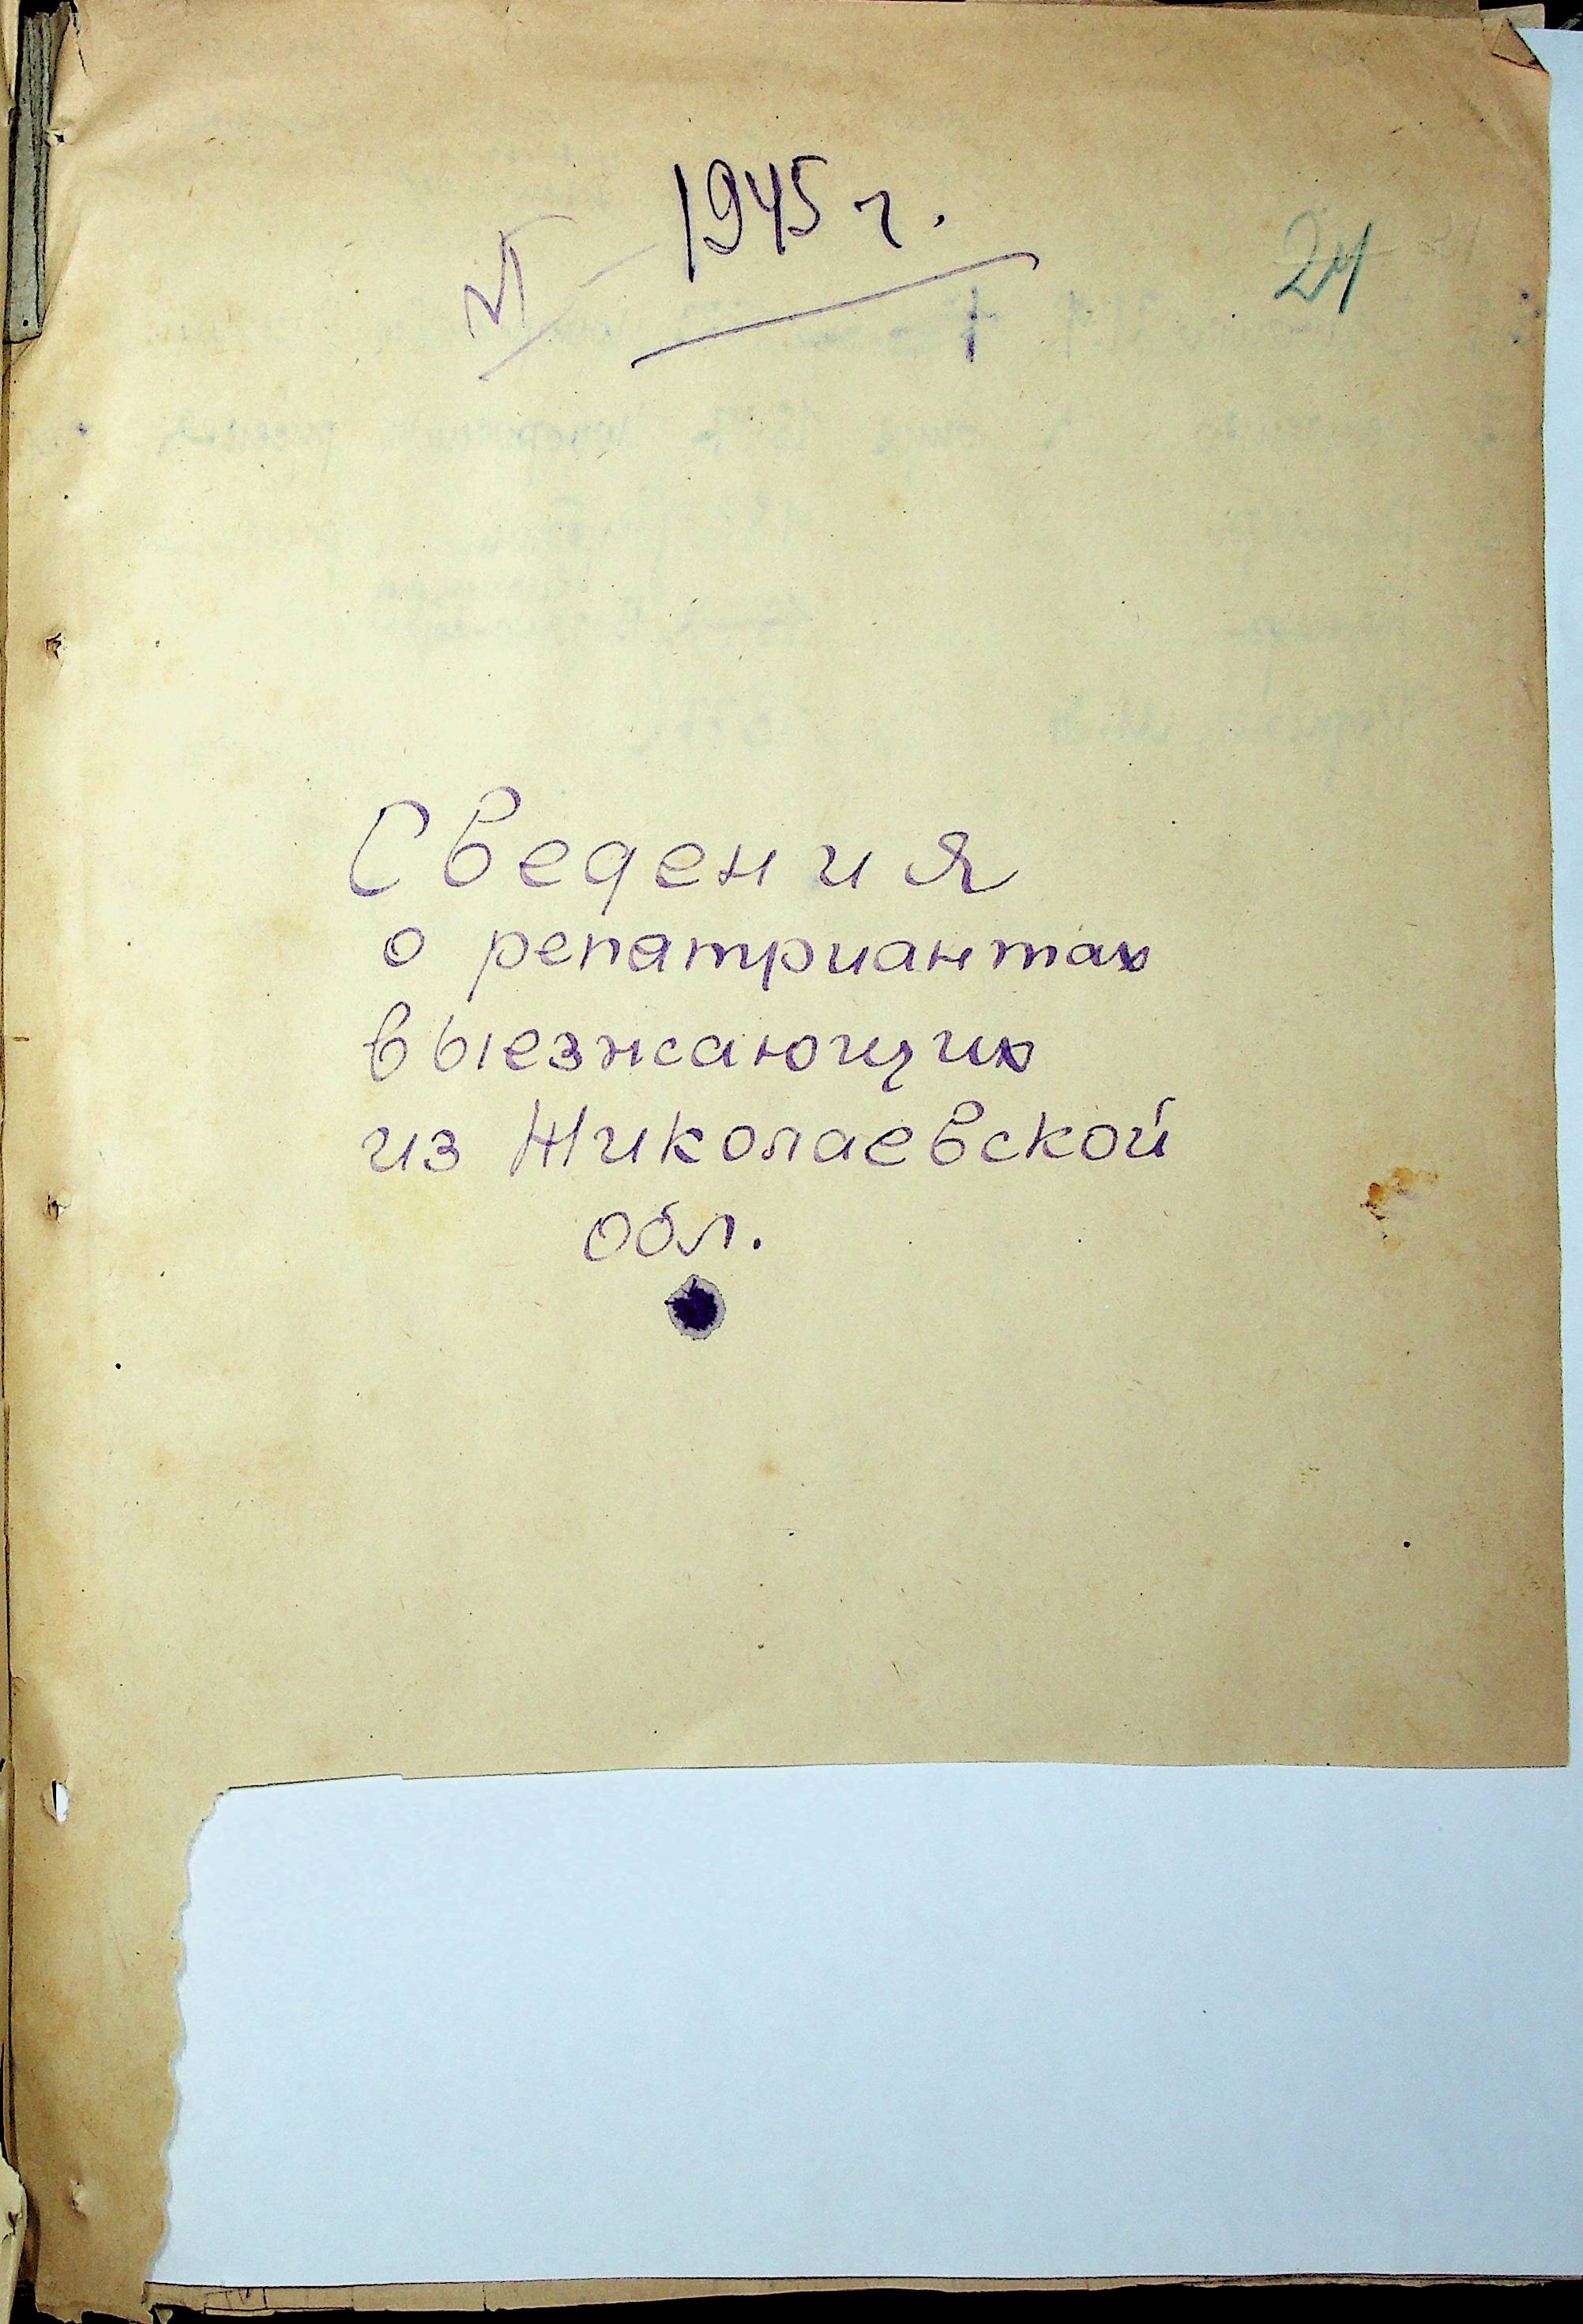 1945 г.
VI
24
Сведения
о репатриантах
выезжающих
из Николаевской
обл.